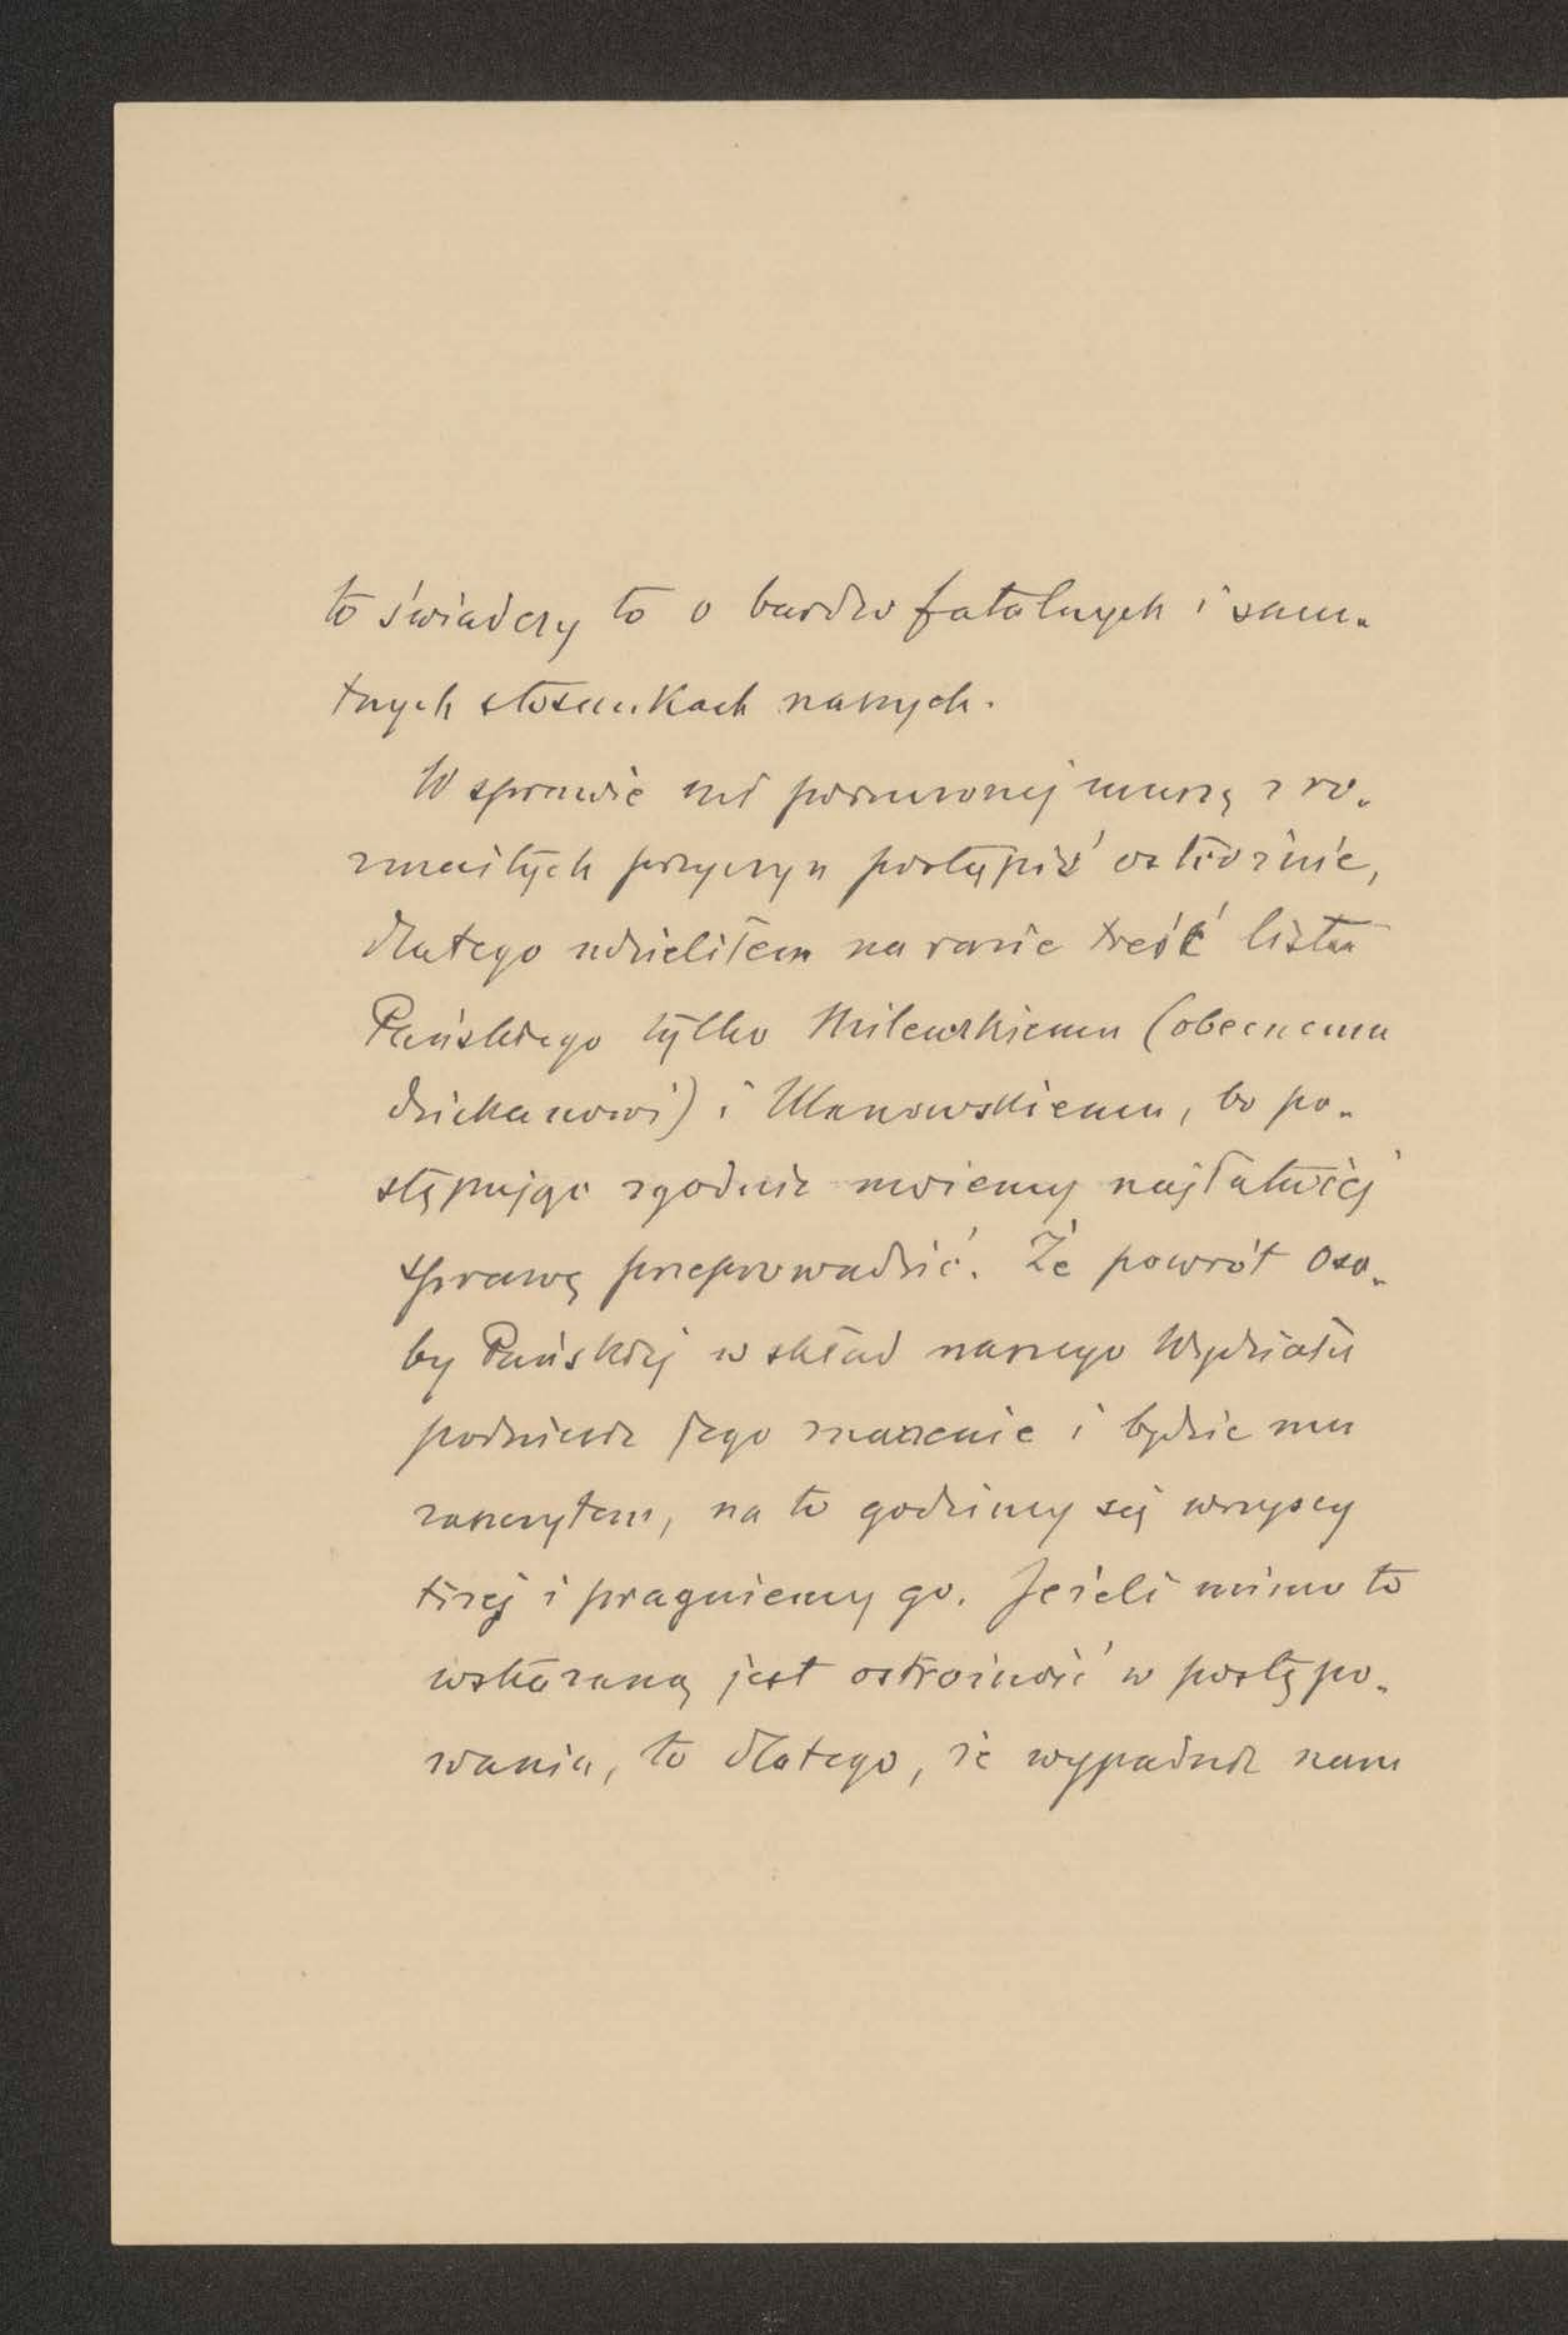 to świadczy to o bardzo fatalnych i smu-
tnych stosunkach naszych.
W sprawie mi poruszonej muszę z ro-
zmaitych przyczyn postąpić ostrożnie,
dlatego udzieliłem na razie treść listu
Pańskiego tylko Milewskiemu (obecnemu
dziekanowi) i Ulanowskiemu, bo po-
stępując zgodnie możemy najłatwiej
sprawę przeprowadzić. Że powrót oso-
by Pańskiej w skład naszego Wydziału
podniesie jego znaczenie i będzie mu
zaszczytem, na to godzimy się wszyscy
trzej i pragniemy go. Jeżeli mimo to
wskazaną jest ostrożność w postępo-
waniu, to dlatego, że wypadnie nam